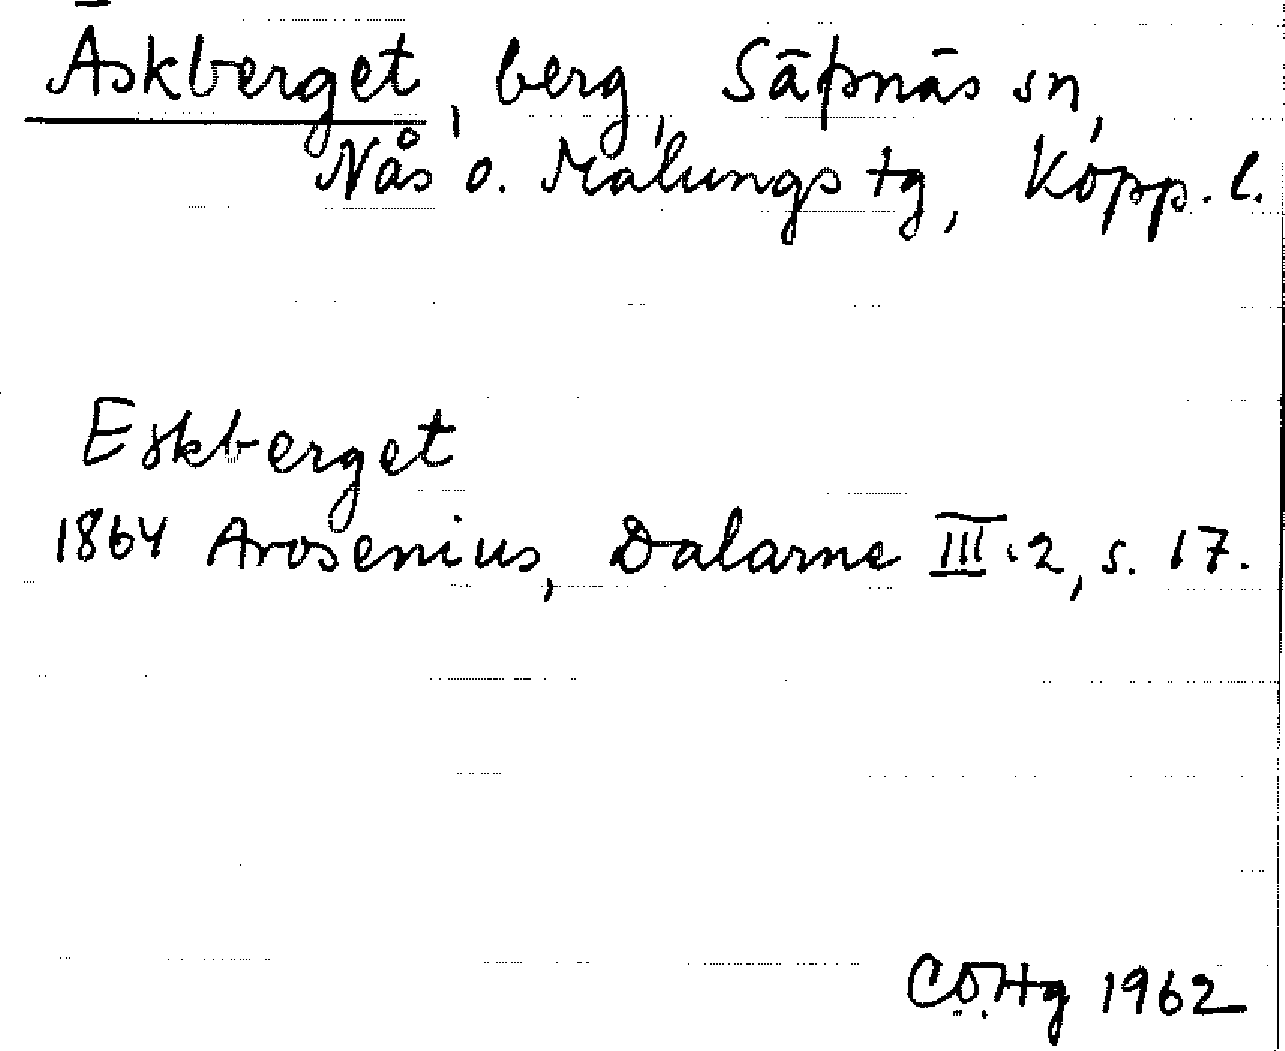 Äskberget, berg, Säfsnäs sn,
Nås o. Malungs tg, Kopp. l.
Eskberget
1864 Arosenius, Dalarne III:2, s. 17.
1962